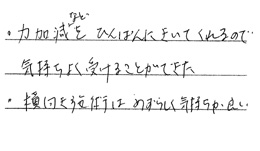 ・力加減などを ひんぱんにきいてくれるので
気持ちよく受けることができた
・横向き施術は めずらしく気持ちが良い